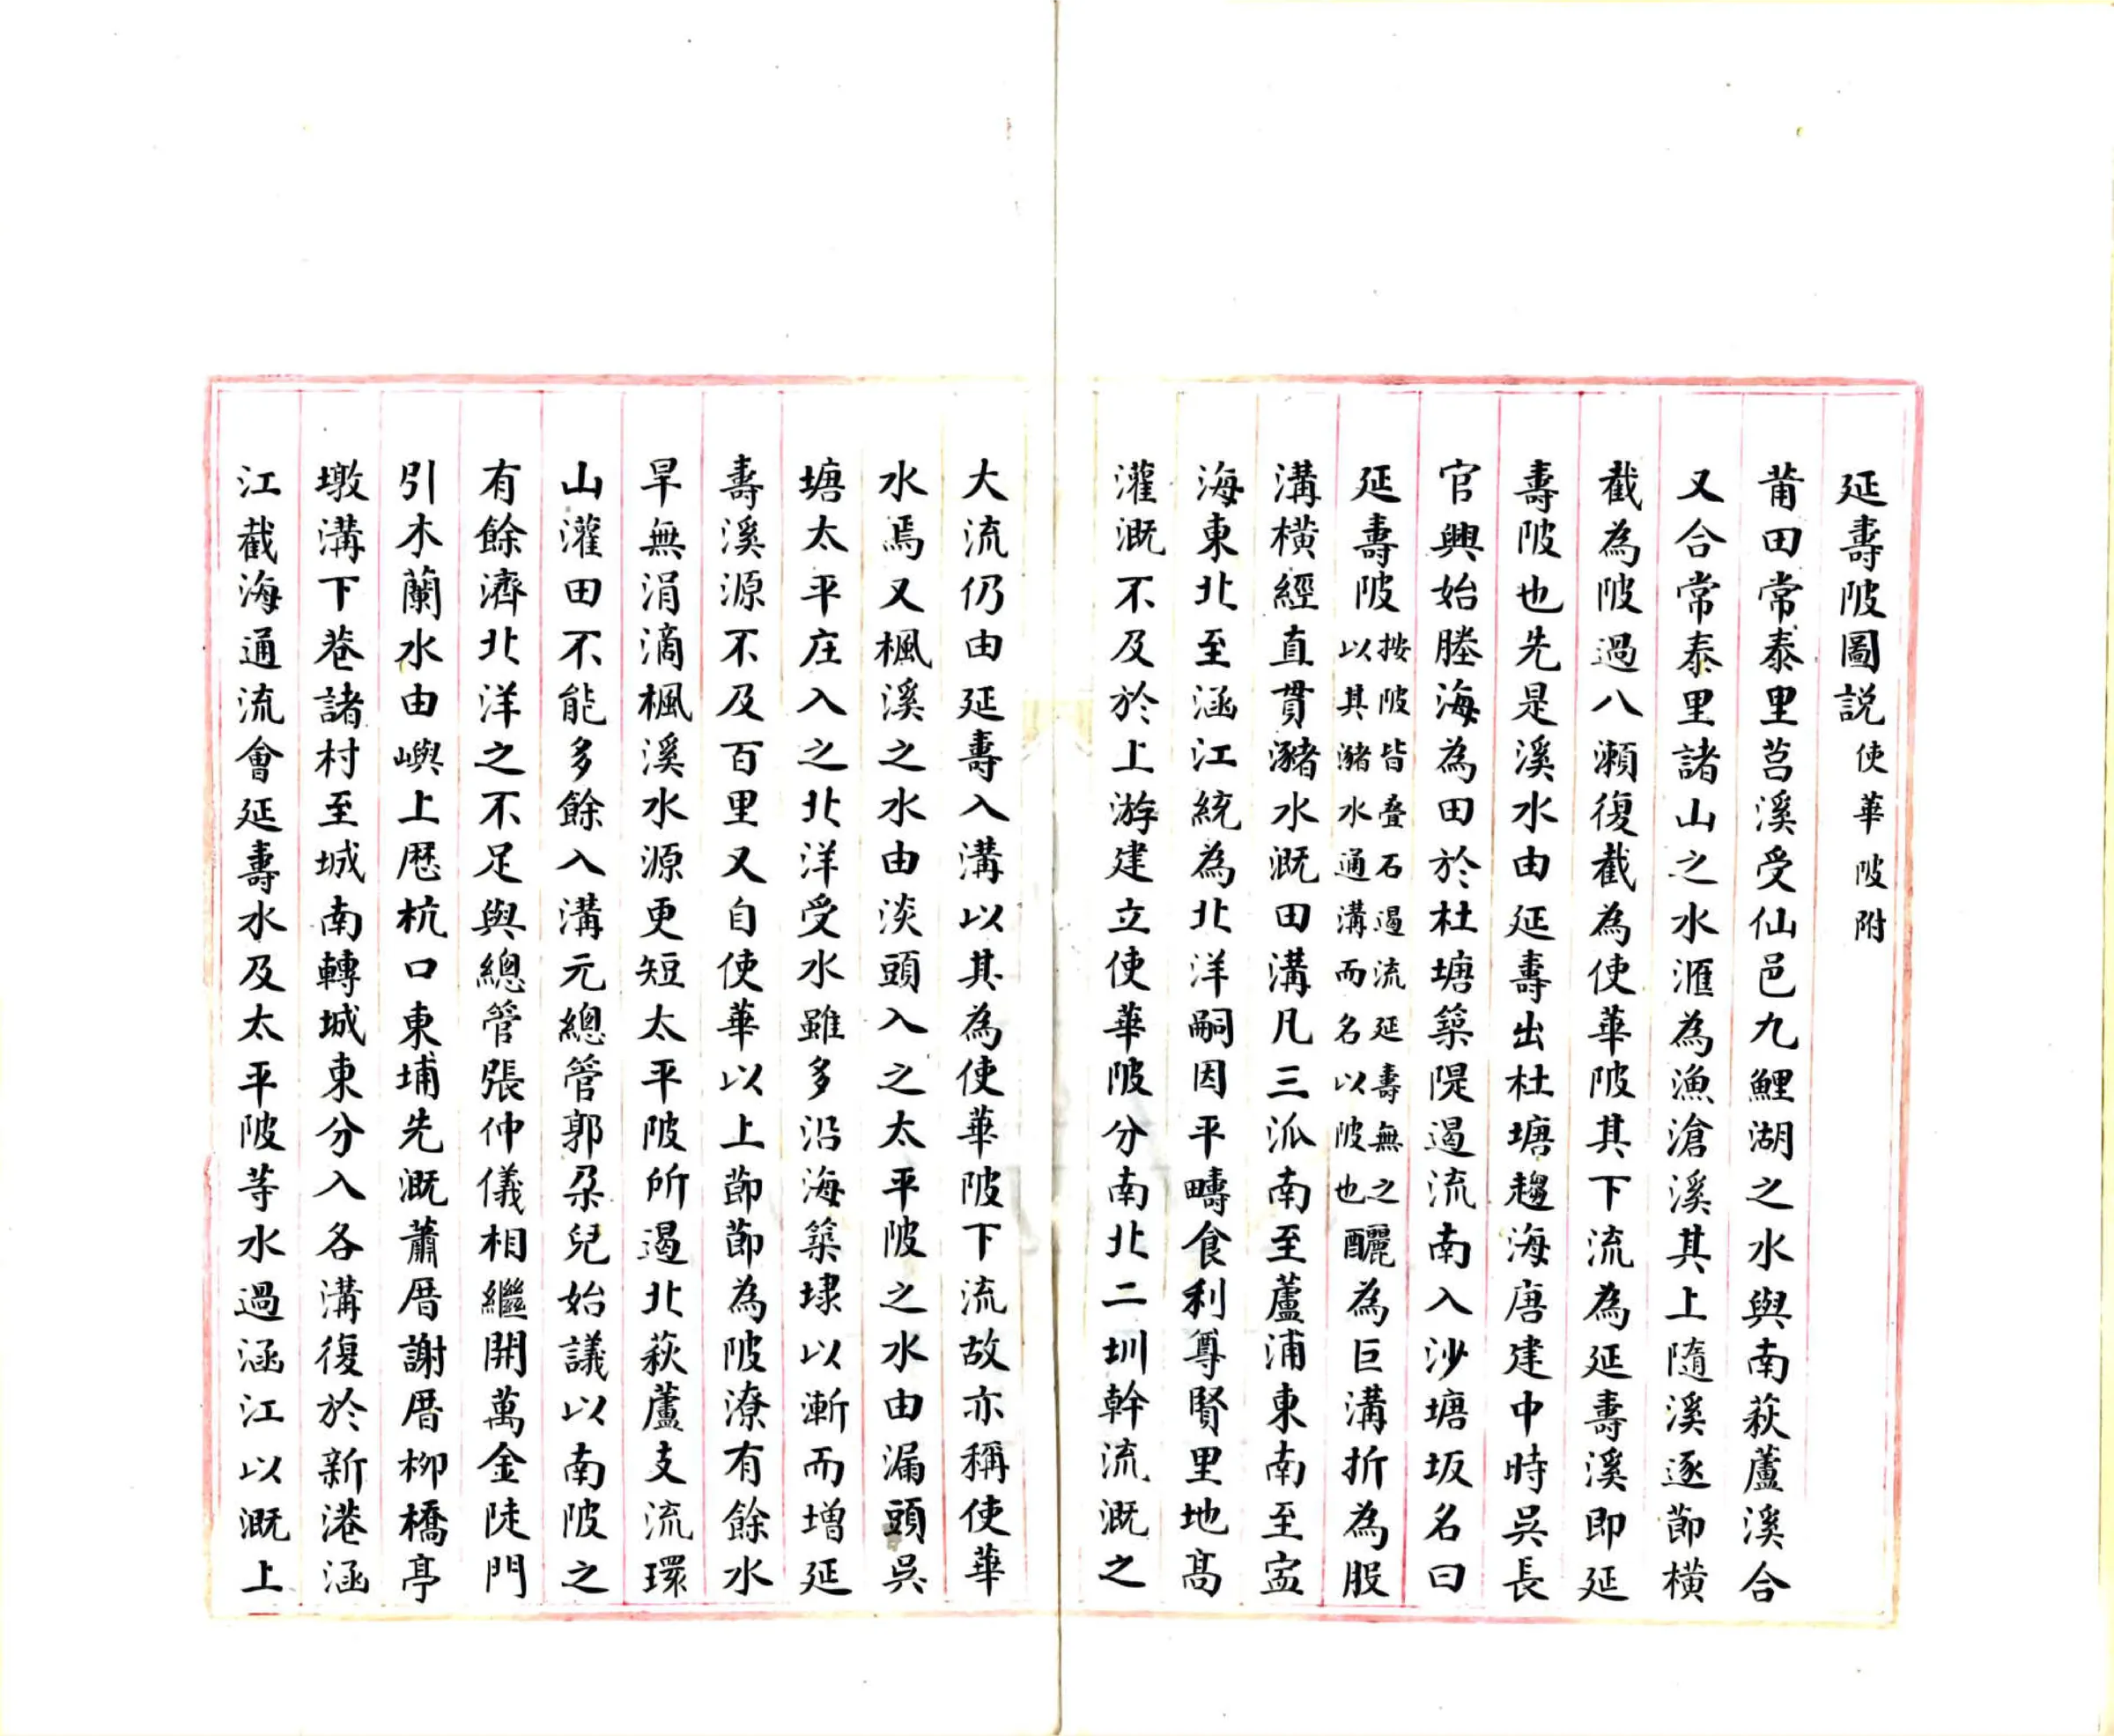 延壽陂圖説 使華陂附
莆田常泰里莒溪受仙邑九鯉湖之水與南萩蘆溪合
又合常泰里諸山之水滙為漁滄溪其上隨溪逐節橫
截為陂過八瀨復截為使華陂其下流為延壽溪即延
壽陂也先是溪水由延壽出杜塘趨海唐建中時吳長
官興始塍海為田於杜塘築隄遏流南入沙塘坂名曰
延壽陂 按陂皆疊石遏流延壽無之以其瀦水通溝而名以陂也 釃為巨溝折為股
溝橫經直貫瀦水溉田溝凡三派南至蘆浦東南至寍
海東北至涵江統為北洋嗣因平疇食利尊賢里地髙
灌溉不及於上游建立使華陂分南北二圳幹流溉之
大流仍由延壽入溝以其為使華陂下流故亦稱使華
水焉又楓溪之水由淡頭入之太平陂之水由漏頭吳
塘太平庄入之北洋受水雖多沿海築埭以漸而增延
壽溪源不及百里又自使華以上節節為陂潦有餘水
旱無涓滴楓溪水源更短太平陂所遏北萩蘆支流環
山灌田不能多餘入溝元總管郭朶兒始議以南陂之
有餘濟北洋之不足與總管張仲儀相繼開萬金陡門
引木蘭水由嶼上歷杭口東埔先溉蕭厝謝厝柳橋亭
墩溝下巷諸村至城南轉城東分入各溝復於新港涵
江截海通流會延壽水及太平陂等水過涵江以溉上